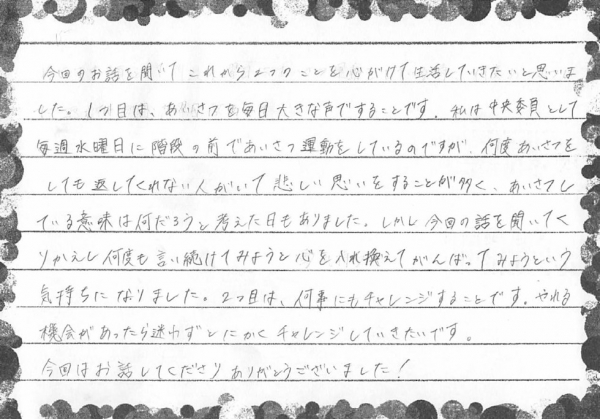 今回のお話を聞いてこれから2つのことを心がけて生活していきたいと思いま
した。1つ目は、あいさつを毎日大きな声ですることです。私は中央委員として
毎週水曜日に階段の前であいさつ運動をしているのですが、何度あいさつを
しても返してくれない人がいて悲しい思いをすることが多く、あいさつし
ている意味は何だろうと考えた日もありました。しかし今回の話を聞いてく
りかえし何度も言い続けてみようと心を入れ換えてがんばってみようという
気持ちになりました。2つ目は、何事にもチャレンジすることです。やれる
機会があったら迷わずとにかくチャレンジしていきたいです。
今回はお話してくださりありがとうございました!